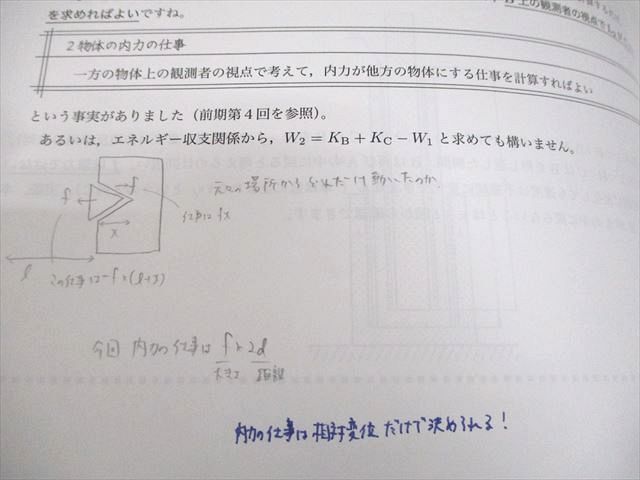 を求めればよいですね。
2物体の内力の仕事
一方の物体上の観測者の視点で考えて，内力が他方の物体にする仕事を計算すればよい
という事実がありました（前期第4回を参照）。
あるいは，エネルギー収支関係から，W₂ = K_B + K_C − W₁ と求めても構いません。
元々の場所からどれだけ動いたのか.
f
f
仕事は fx
x
l
この仕事は −f×(l+x)
今回 内力の仕事は f × 2d
大きさ 距離
内力の仕事は相対変位だけで決められる！